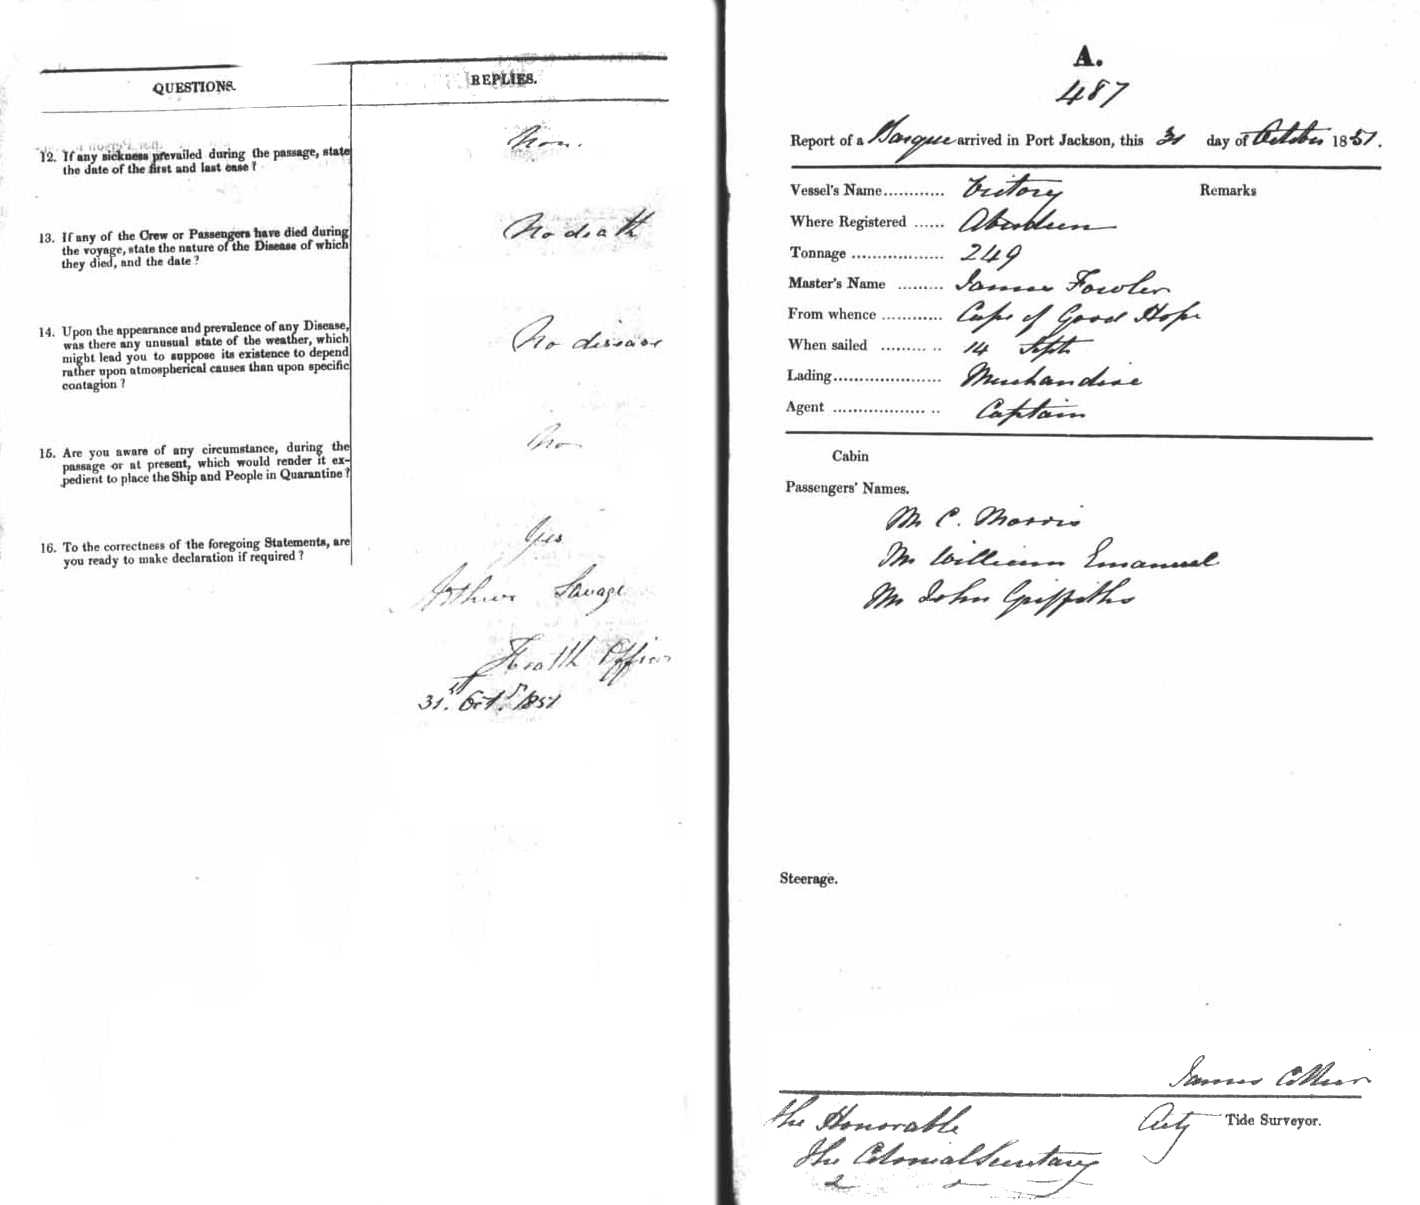 QUESTIONS.
REPLIES.
12. If any sickness prevailed during the passage, state
the date of the first and last case ?
Non.
13. If any of the Crew or Passengers have died during
the voyage, state the nature of the Disease of which
they died, and the date ?
No death
14. Upon the appearance and prevalence of any Disease,
was there any unusual state of the weather, which
might lead you to suppose its existence to depend
rather upon atmospherical causes than upon specific
contagion ?
No disease
15. Are you aware of any circumstance, during the
passage or at present, which would render it ex-
pedient to place the Ship and People in Quarantine ?
No
16. To the correctness of the foregoing Statements, are
you ready to make declaration if required ?
Yes
Arthur Savage
Health Officer
31st Octr. 1851
A.
487
Report of a Barque arrived in Port Jackson, this 31 day of October 1851.
Vessel's Name............ Victory
Remarks
Where Registered ...... Aberdeen
Tonnage .................. 249
Master's Name ......... James Fowler
From whence ............ Cape of Good Hope
When sailed ......... .. 14 Sept
Lading..................... Merchandise
Agent .................. .. Captain
Cabin
Passengers' Names.
Mr C. Morris
Mr William Emanuel
Mr John Griffiths
Steerage.
James Collier
Actg Tide Surveyor.
The Honorable
The Colonial Secretary